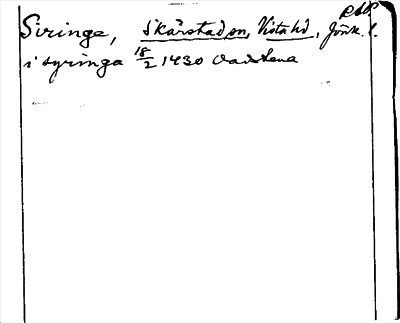 RAP
Siringe, Skärstad sn, Vista hd, Jönk. l.
i syringa 18/2 1430 Vadstena